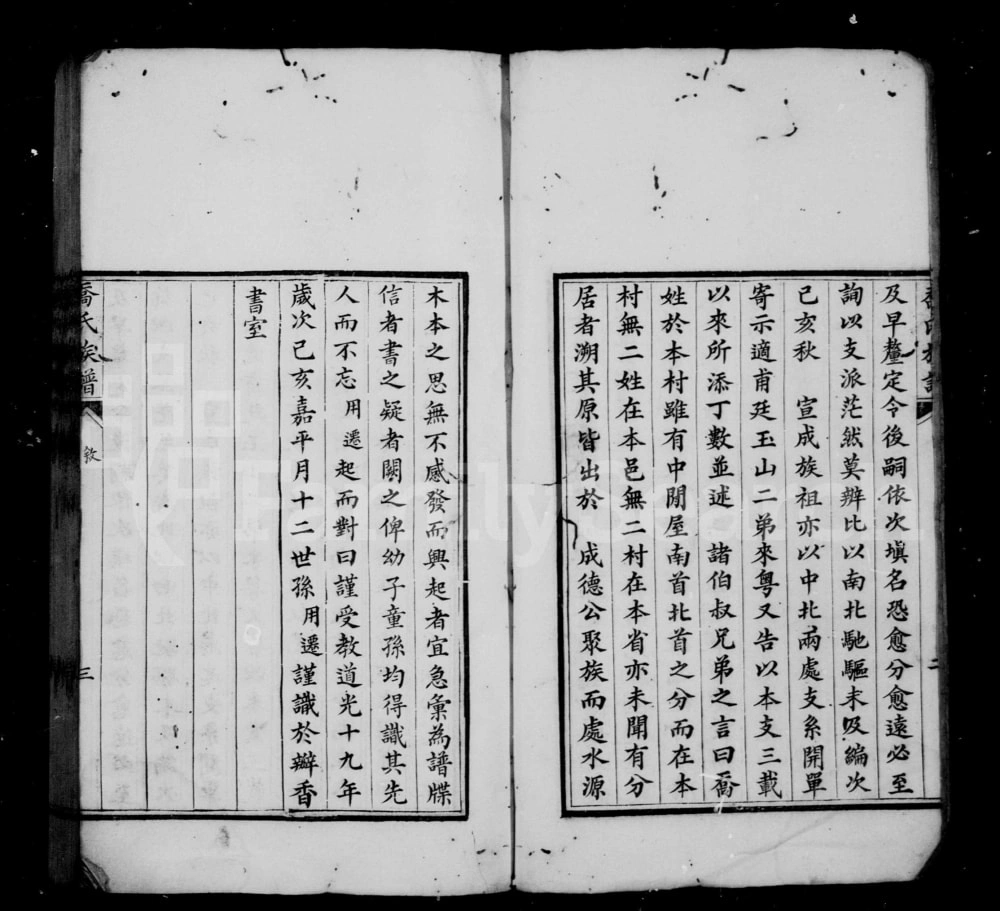 及早釐定令後嗣依次填名恐愈分愈遠必至
詢以支派茫然莫辨比以南北馳驅未及編次
己亥秋　宣成族祖亦以中北兩處支系開單
寄示適甫廷玉山二弟來粵又告以本支三載
以來所添丁數並述　諸伯叔兄弟之言曰矞
姓於本村雖有中閒屋南首北首之分而在本
村無二姓在本邑無二村在本省亦未聞有分
居者溯其原皆出於　成德公聚族而處水源
二
木本之思無不感發而興起者宜急彙為譜牒
信者書之疑者闕之俾幼子童孫均得識其先
人而不忘用遷起而對曰謹受教道光十九年
歲次己亥嘉平月十二世孫用遷謹識於瓣香
書室
矞氏族譜
敘
三
FamilySearch